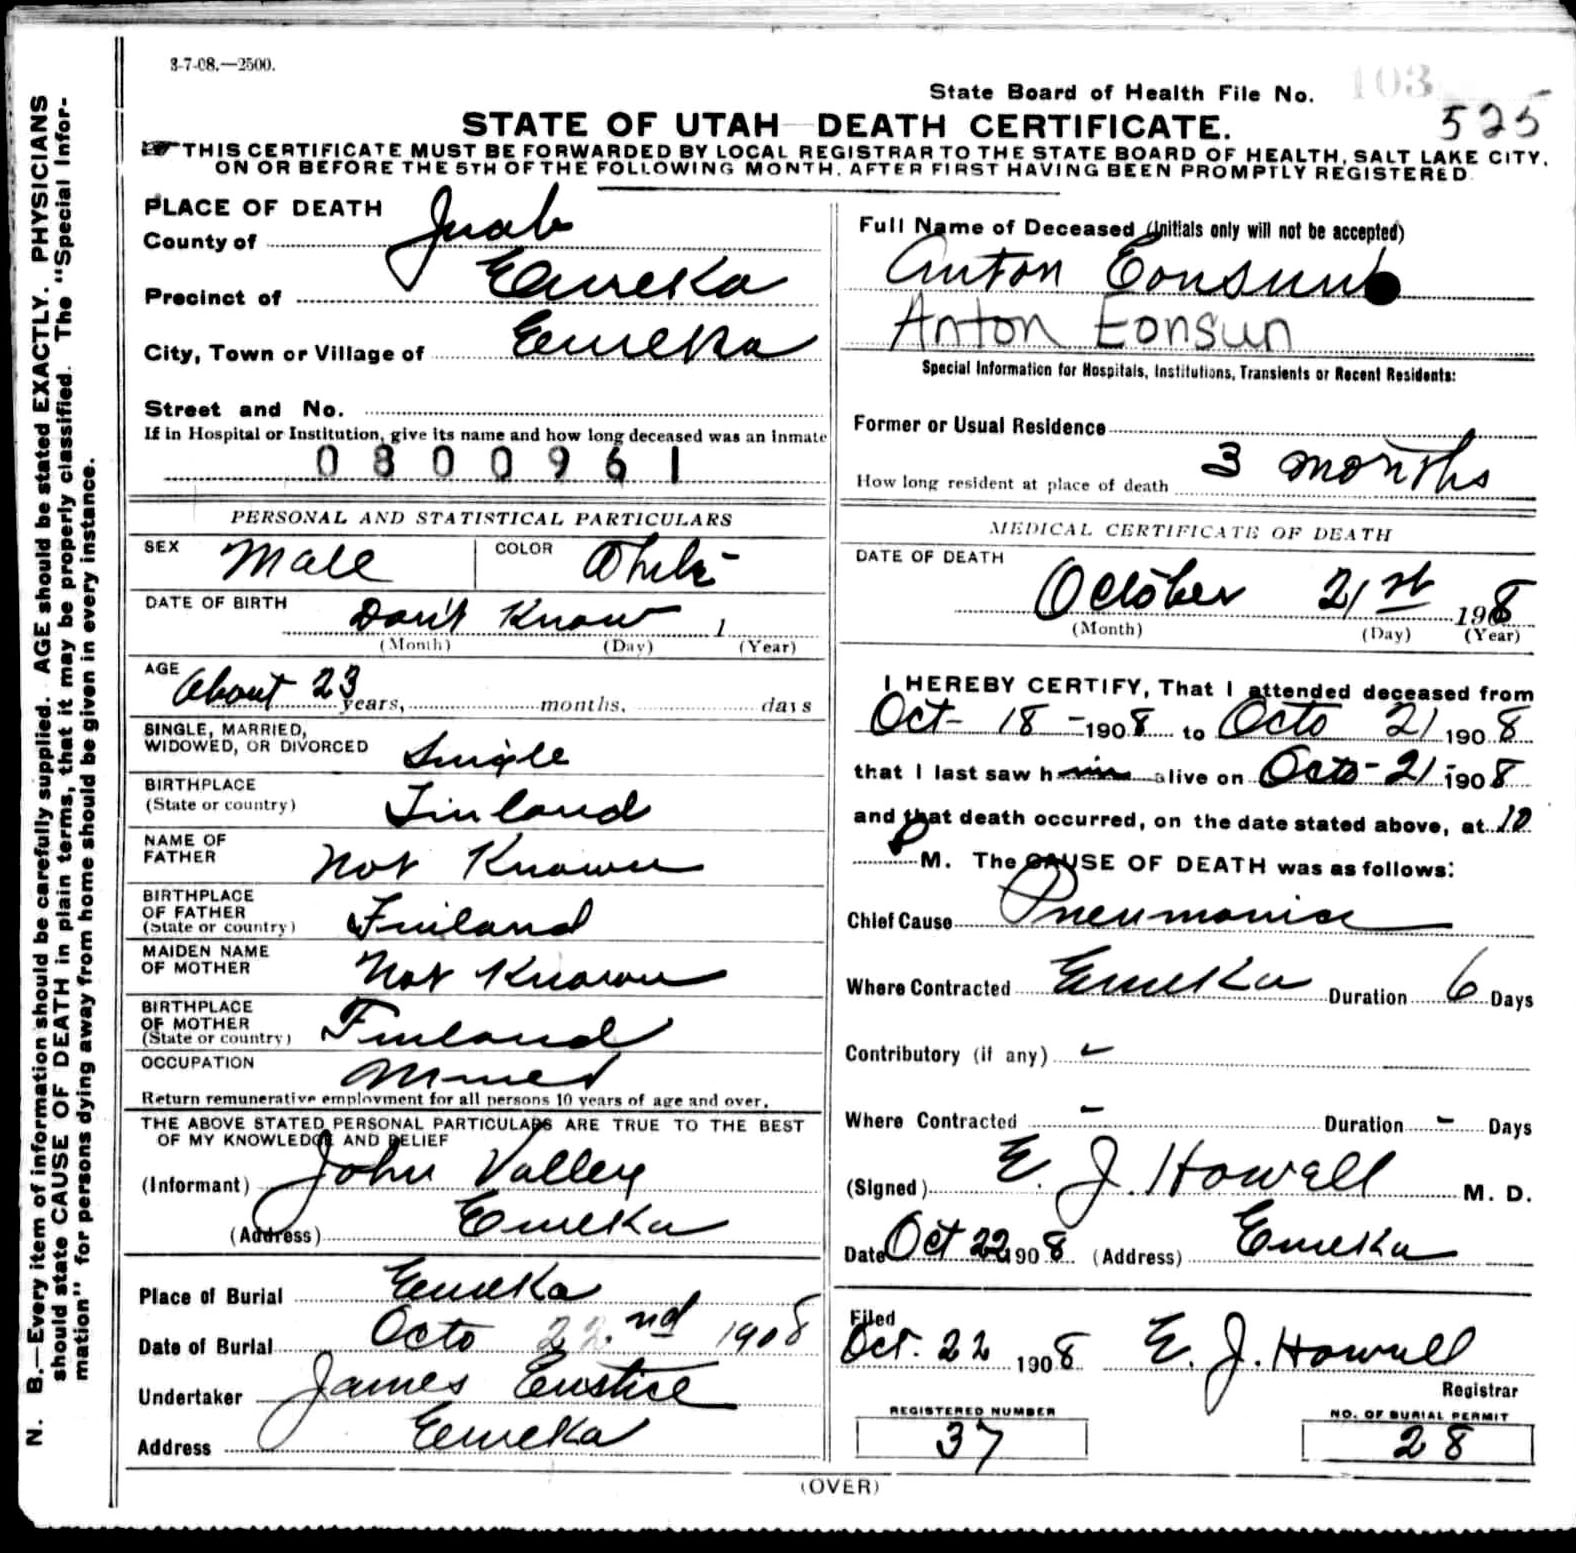 3-7-08.—2500.
State Board of Health File No. 103
525
STATE OF UTAH—DEATH CERTIFICATE.
THIS CERTIFICATE MUST BE FORWARDED BY LOCAL REGISTRAR TO THE STATE BOARD OF HEALTH, SALT LAKE CITY,
ON OR BEFORE THE 5TH OF THE FOLLOWING MONTH, AFTER FIRST HAVING BEEN PROMPTLY REGISTERED.
N. B.—Every item of information should be carefully supplied. AGE should be stated EXACTLY. PHYSICIANS
should state CAUSE OF DEATH in plain terms, that it may be properly classified. The "Special Infor-
mation" for persons dying away from home should be given in every instance.
PLACE OF DEATH
County of Juab
Precinct of Eureka
City, Town or Village of Eureka
Street and No.
If in Hospital or Institution, give its name and how long deceased was an inmate
0800961
PERSONAL AND STATISTICAL PARTICULARS
SEX Male COLOR White
DATE OF BIRTH Don't Know 1
(Month) (Day) (Year)
AGE About 23 years, months, days
SINGLE, MARRIED,
WIDOWED, OR DIVORCED Single
BIRTHPLACE
(State or country) Finland
NAME OF
FATHER Not Known
BIRTHPLACE
OF FATHER
(State or country) Finland
MAIDEN NAME
OF MOTHER Not Known
BIRTHPLACE
OF MOTHER
(State or country) Finland
OCCUPATION Miner
Return remunerative employment for all persons 10 years of age and over.
THE ABOVE STATED PERSONAL PARTICULARS ARE TRUE TO THE BEST
OF MY KNOWLEDGE AND BELIEF
(Informant) John Valley
(Address) Eureka
Place of Burial Eureka
Date of Burial Octo 22.nd 1908
Undertaker James Eustice
Address Eureka
Full Name of Deceased (Initials only will not be accepted)
Anton Eonsun
Anton Eonsun
Special Information for Hospitals, Institutions, Transients or Recent Residents:
Former or Usual Residence
How long resident at place of death 3 months
MEDICAL CERTIFICATE OF DEATH
DATE OF DEATH
October 21st 1908
(Month) (Day) (Year)
I HEREBY CERTIFY, That I attended deceased from
Oct- 18 - 1908 to Octo 21 1908
that I last saw him alive on Octo- 21- 1908
and that death occurred, on the date stated above, at 10
P M. The CAUSE OF DEATH was as follows:
Chief Cause Pneumonia
Where Contracted Eureka Duration 6 Days
Contributory (if any)
Where Contracted - Duration - Days
(Signed) E. J. Howell M. D.
Date Oct 22 1908 (Address) Eureka
Filed
Oct. 22 1908 E. J. Howell
Registrar
REGISTERED NUMBER
37
NO. OF BURIAL PERMIT
28
(OVER)